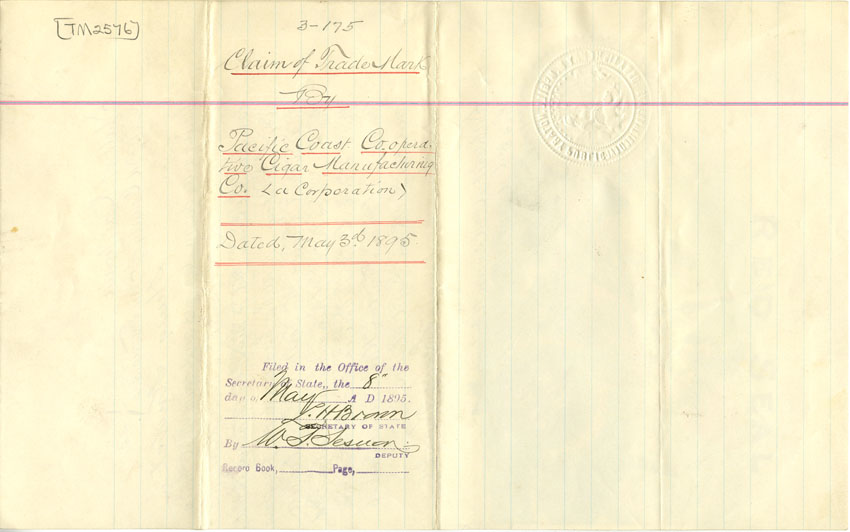 [TM2576]
3-175
Claim of Trade Mark
By
Pacific Coast Co. opera-
tive Cigar Manufacturing
Co. (a Corporation)
Dated, May 3d. 1895.
Filed in the Office of the
Secretary of State, the 8"
day of May A D 1895.
L. H. Brown
SECRETARY OF STATE
By W. T.
DEPUTY
Record Book, Page,